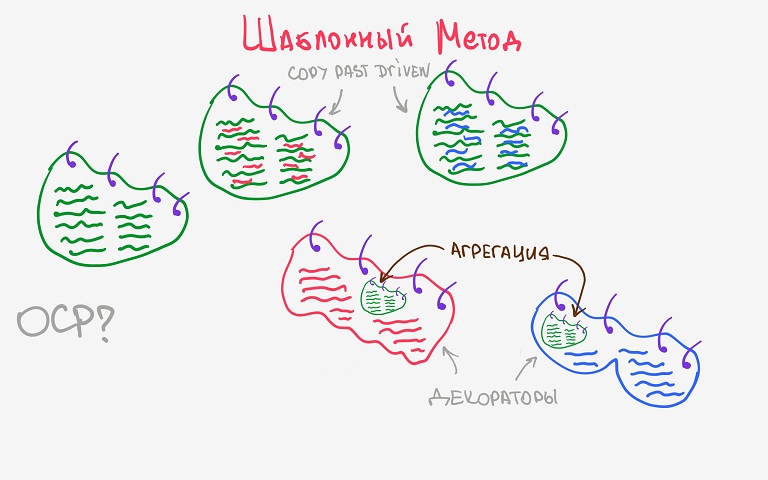 Шаблонный Метод
COPY PAST DRIVEN
АГРЕГАЦИЯ
OCP?
ДЕКОРАТОРЫ